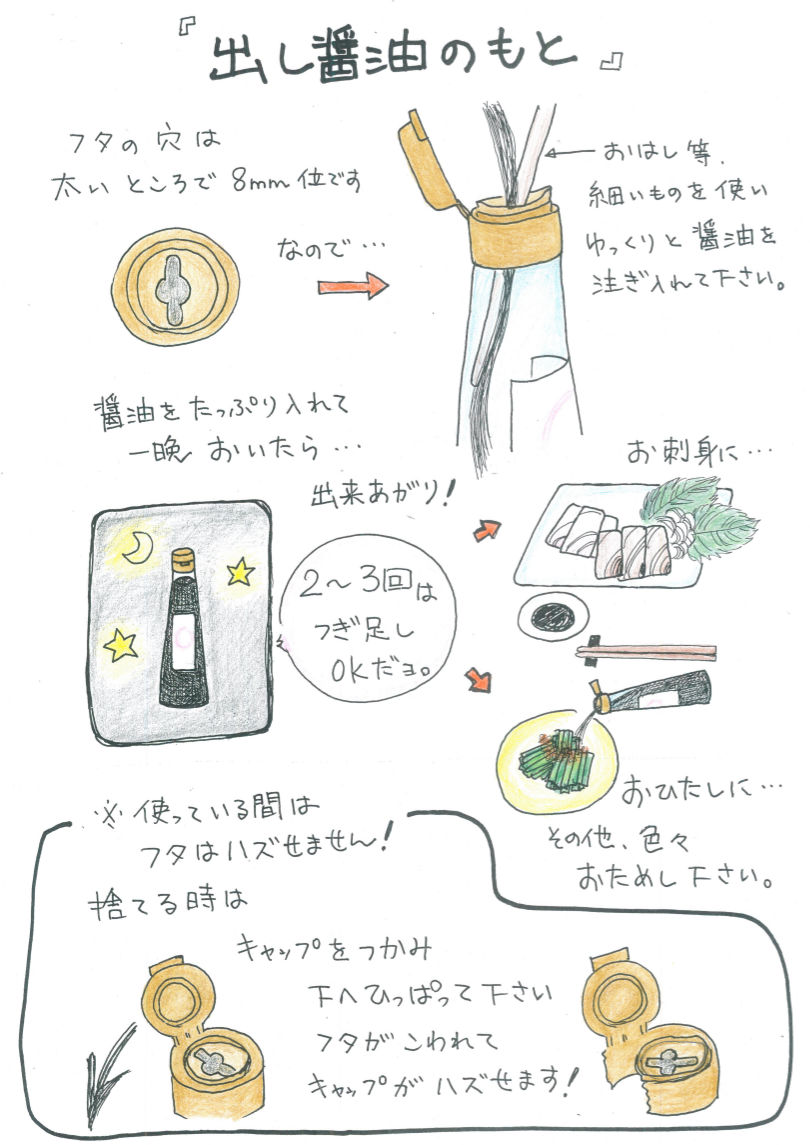 『出し醤油のもと』
フタの穴は
太いところで8mm位です
なので…
おはし等、
細いものを使い
ゆっくりと醤油を
注ぎ入れて下さい。
醤油をたっぷり入れて
一晩おいたら…
出来あがり！
2～3回は
つぎ足し
OKだヨ。
お刺身に…
おひたしに…
その他、色々
おためし下さい。
※使っている間は
フタはハズせません！
捨てる時は
キャップをつかみ
下へひっぱって下さい
フタがこわれて
キャップがハズせます！